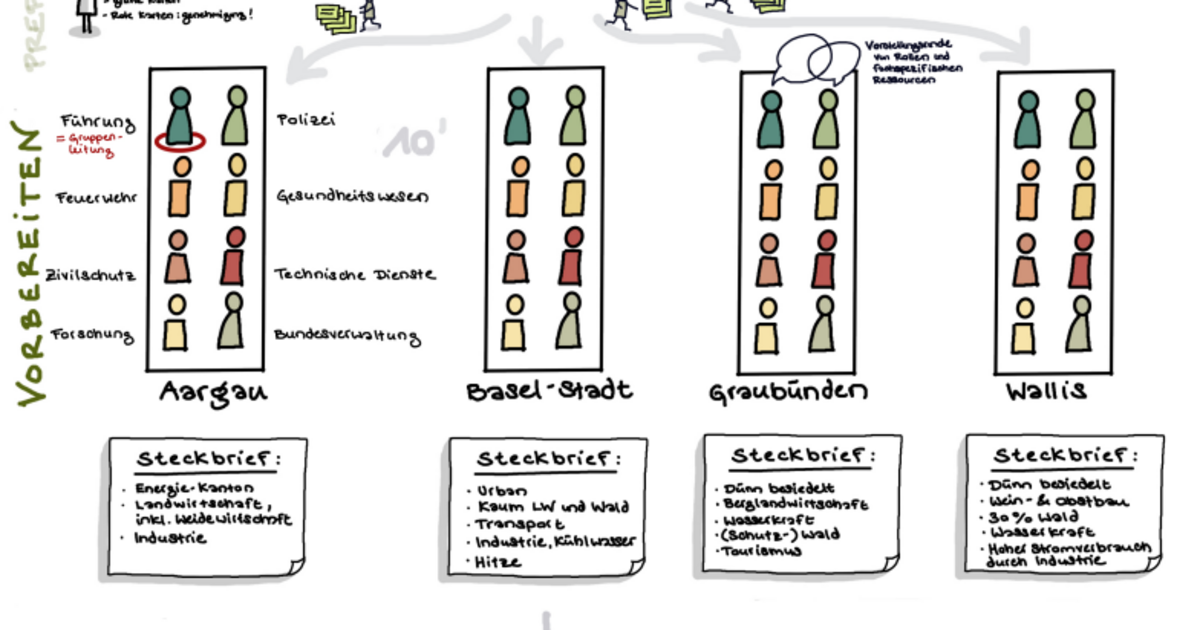 - Rote Karten: genehmigung!
Vorstellungsrunde
von Rollen und
fachspezifischen
Ressourcen
VORBEREITEN
10'
Führung
= Gruppen-
leitung
Polizei
Feuerwehr
Gesundheitswesen
Zivilschutz
Technische Dienste
Forschung
Bundesverwaltung
Aargau
Basel-Stadt
Graubünden
Wallis
Steckbrief:
· Energie-Kanton
· Landwirtschaft,
inkl. Weidewirtschaft
· Industrie
Steckbrief:
· Urban
· Kaum LW und Wald
· Transport
· Industrie, Kühlwasser
· Hitze
Steckbrief:
· Dünn besiedelt
· Berglandwirtschaft
· Wasserkraft
· (Schutz-) Wald
· Tourismus
Steckbrief:
· Dünn besiedelt
· Wein- & Obstbau
· 30% Wald
· Wasserkraft
· Hoher Stromverbrauch
durch Industrie